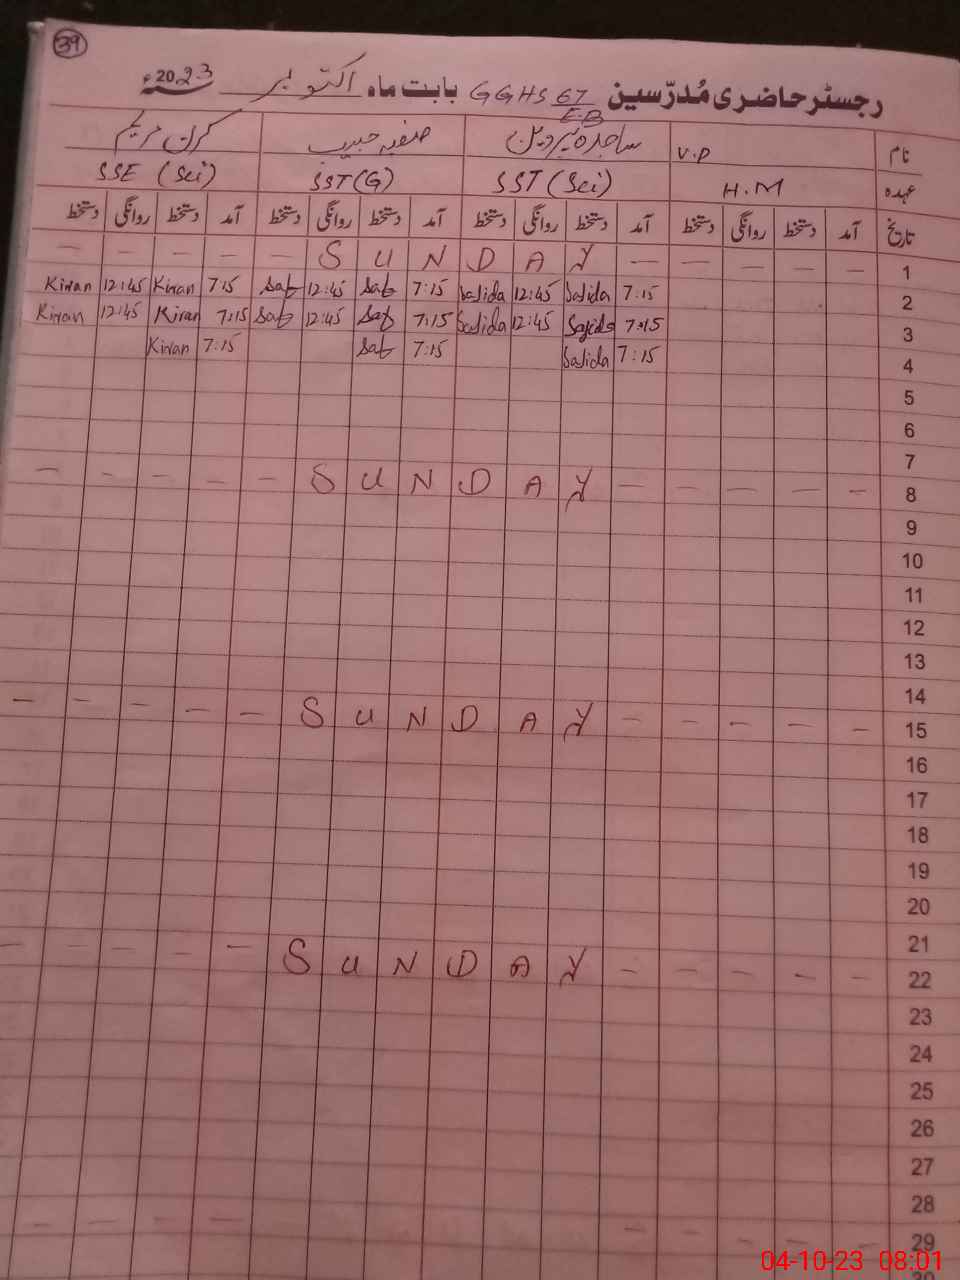 39
رجسٹر حاضری مُدرّسین GGHS 67 بابت ماہ اکتوبر 2023ء
E.B
نام V.P ساجدہ پروین صفیہ حبیب کرن مریم
عہدہ H.M SST (Sci) SST (G) SSE (Sci)
تاریخ آمد دستخط روانگی دستخط آمد دستخط روانگی دستخط آمد دستخط روانگی دستخط آمد دستخط روانگی دستخط
— — — — — S U N D A Y — — — — — 1
Kiran 12:45 Kiran 7:15 Saf 12:45 Saf 7:15 Sajida 12:45 Sajida 7:15 2
Kiran 12:45 Kiran 7:15 Saf 12:45 Saf 7:15 Sajida 12:45 Sajida 7:15 3
Kiran 7:15 Saf 7:15 Sajida 7:15 4
5
6
7
— — — — — S U N D A Y — — — — — 8
9
10
11
12
13
14
— — — — — S U N D A Y — — — — — 15
16
17
18
19
20
21
— — — — — S U N D A Y — — — — — 22
23
24
25
26
27
28
— — — — — — — — — 29
04-10-23 08:01
30